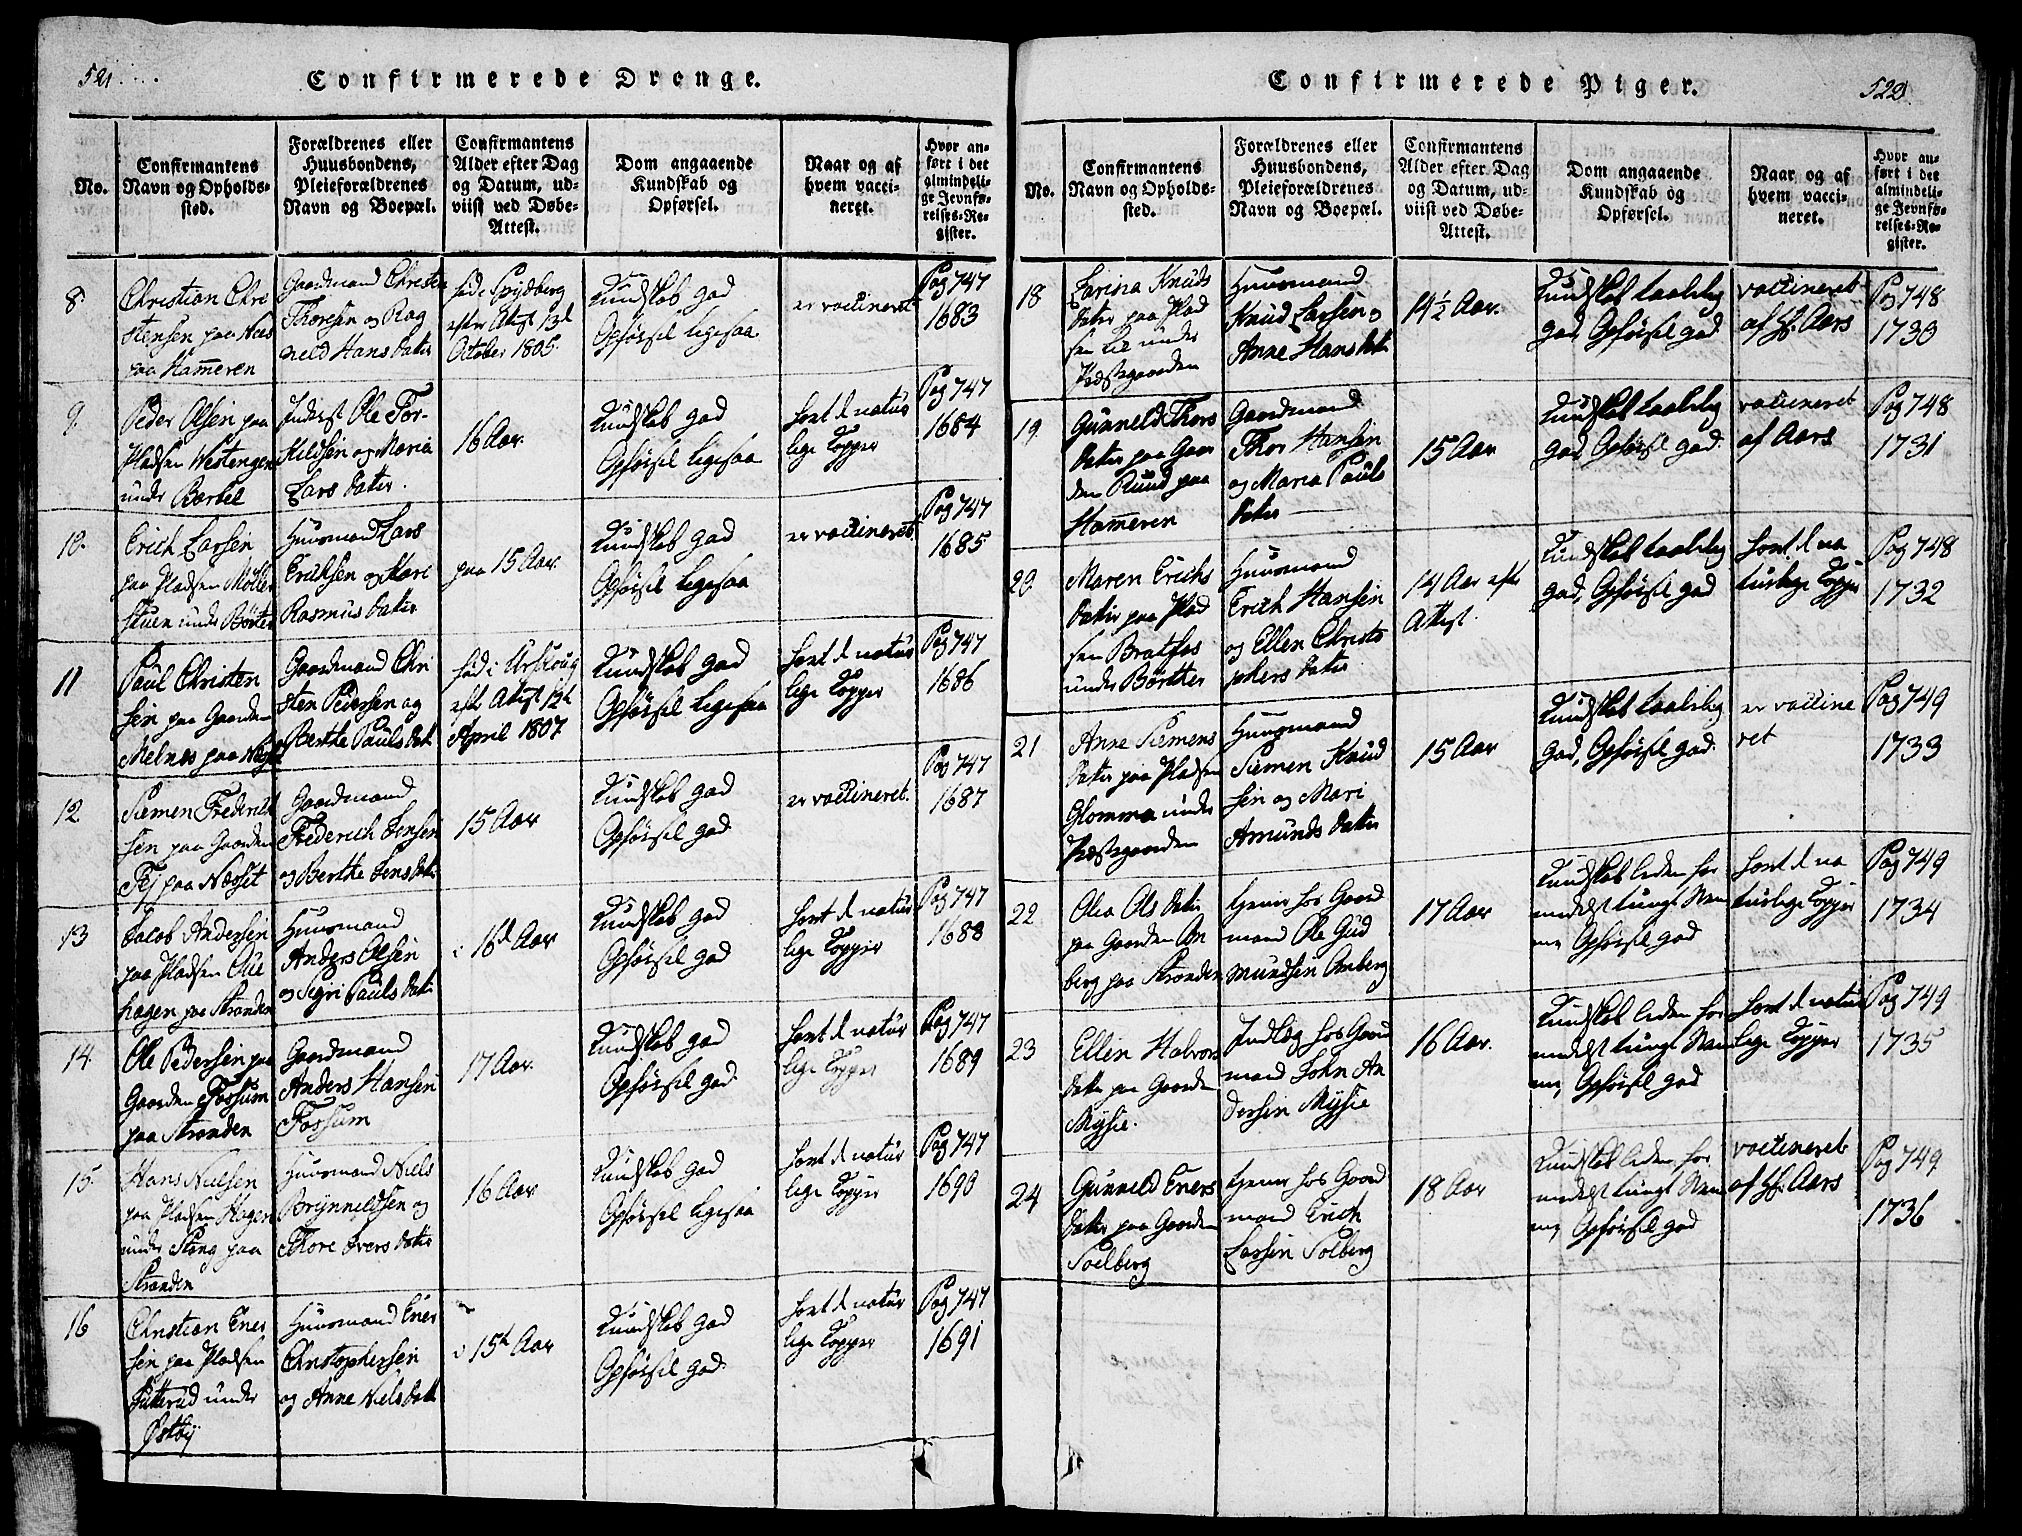 521.
Confirmerede Drenge.
No.
Confirmantens
Navn og Opholds-
sted.
Forældrenes eller
Huusbondens,
Pleieforældrenes
Navn og Boepæl.
Confirmantens
Alder efter Dag
og Datum, ud-
viist ved Døbe-
Attest.
Dom angaaende
Kundskab og
Opførsel.
Naar og af
hvem vacci-
neret.
Hvor an-
ført i det
almindeli-
ge Jevnfø-
relses-Re-
gister.
8.
Christian Chri
stensen paa Næs
paa Hammeren
Gaardmand Christen
Thoresen og Rag
nild Hans Datter
født i Spydberg
efter Attest 13d
October 1805.
Kundskab god
Opførsel ligesaa
er vaccineret
Pag 747
1683
9.
Peder Olsen paa
Pladsen Westengen
under
Inderst Ole Tor-
kildsen og Maria
Lars Datter.
16 Aar.
Kundskab god
Opførsel ligesaa
havt d natur
lige Kopper
Pag 747
1684
10.
Erich Larsen
paa Pladsen Møller
stuen under Børter
Huusmand Lars
Erichsen og Kari
Rasmus Datter
paa 15 Aar.
Kundskab god
Opførsel ligesaa
er vaccineret
Pag 747
1685
11
Paul Christen
sen paa Gaarden
Melnes paa
Gaardmand Chri
sten Pedersen og
Berthe Pauls Datt
født i Urskoug
eft Attest 12t
April 1807
Kundskab god
Opførsel ligesaa
havt d natur
lige Kopper
Pag 747
1686
12
Siemen Frederich
sen paa Gaarden
Tej paa Næsset
Gaardmand
Frederich Jensen
og Berthe Jens Datter
15 Aar
Kundskab god
Opførsel god
er vaccineret.
Pag 747
1687
13
Jacob Andersen
paa Pladsen
hagen paa Stranden
Huusmand
Anders Olsen
og Sigri Pauls Datter
i 16d Aar
Kundskab god
Opførsel god
havt d natur
lige Kopper
Pag 747
1688
14.
Ole Pedersen paa
Gaarden Fossum
paa Stranden
Gaardmand
Anders Hansen
Fossum
17 Aar.
Kundskab god
Opførsel god.
havt d natur
lige Kopper
Pag 747
1689
15.
Hans Nielsen
paa Pladsen Hagen
under Stang paa
Stranden
Huusmand Niels
Brynnildsen og
Thore Ivers Datter
16 Aar
Kundskab god
Opførsel ligesaa
havt d natur
lige Kopper
Pag 747
1690
16
Christian Ener
sen paa Pladsen
under
Østby
Huusmand Ener
Christophersen
og Anne Niels Datt
i 15de Aar
Kundskab god
Opførsel god.
havt d natur
lige Kopper
Pag 747
1691
Confirmerede Piger.
522.
No.
Confirmantens
Navn og Opholds-
sted.
Forældrenes eller
Huusbondens,
Pleieforældrenes
Navn og Boepæl.
Confirmantens
Alder efter Dag
og Datum, ud-
viist ved Døbe-
Attest.
Dom angaaende
Kundskab og
Opførsel.
Naar og af
hvem vacci-
neret.
Hvor an-
ført i det
almindeli-
ge Jevnfø-
relses-Re-
gister.
18
Larina Knuds
Datter paa Plad
sen Lie under
Præstegaarden
Huusmand
Knud Larsen og
Anne Hans Datt
14½ Aar.
Kundskab taalelig
god, Opførsel god
vaccineret
af Hr. Aars
Pag 748
1730
19.
Gunneld Thors
Datter paa Gaar
den Ruud paa
Hammeren
Gaardmand
Thor Hansen
og Maria Pauls
Datter
15 Aar
Kundskab taalelig
god, Opførsel god.
vaccineret
af Aars
Pag 748
1731
20.
Maren Erichs
Datter paa Plad
sen Bratfos
under Børther
Huusmand
Erich Hansen
og Ellen Christo
phers Datter
14 Aar efter
Attest.
Kundskab taalelig
god, Opførsel god
havt d na
turlige Kopper
Pag 748
1732
21
Anne Siemens
Datter paa Pladsen
Glomma under
Præstegaarden
Huusmand
Siemen Knud
sen og Mari
Amunds Datter
15 Aar
Kundskab taalelig
god, Opførsel god.
er vaccine
ret
Pag 749
1733
22.
Olea Ols Datter
paa Gaarden On
berg paa Stranden
tjener hos Gaard
mand Ole Gud
mundsen Onberg
17 Aar
Kundskab liden for
medelst tungt Nem
me, Opførsel god
havt d na
turlige Kopper
Pag 749
1734
23
Ellen Halvors
Datter paa Gaarden
Mysie.
Indlæg hos Gaard
mand John An
dersen Mysie
16 Aar.
Kundskab liden for
medelst tungt Nem
me, Opførsel god
havt d natur
lige Kopper
Pag 749
1735
24
Gunneld Eners
Datter paa Gaarden
Soelberg
tjener hos Gaard
mand Erich
Larsen Solberg
18 Aar
Kundskab liden for
medelst tungt Nem
me, Opførsel god
vaccineret
af Hr. Aars
Pag 749
1736